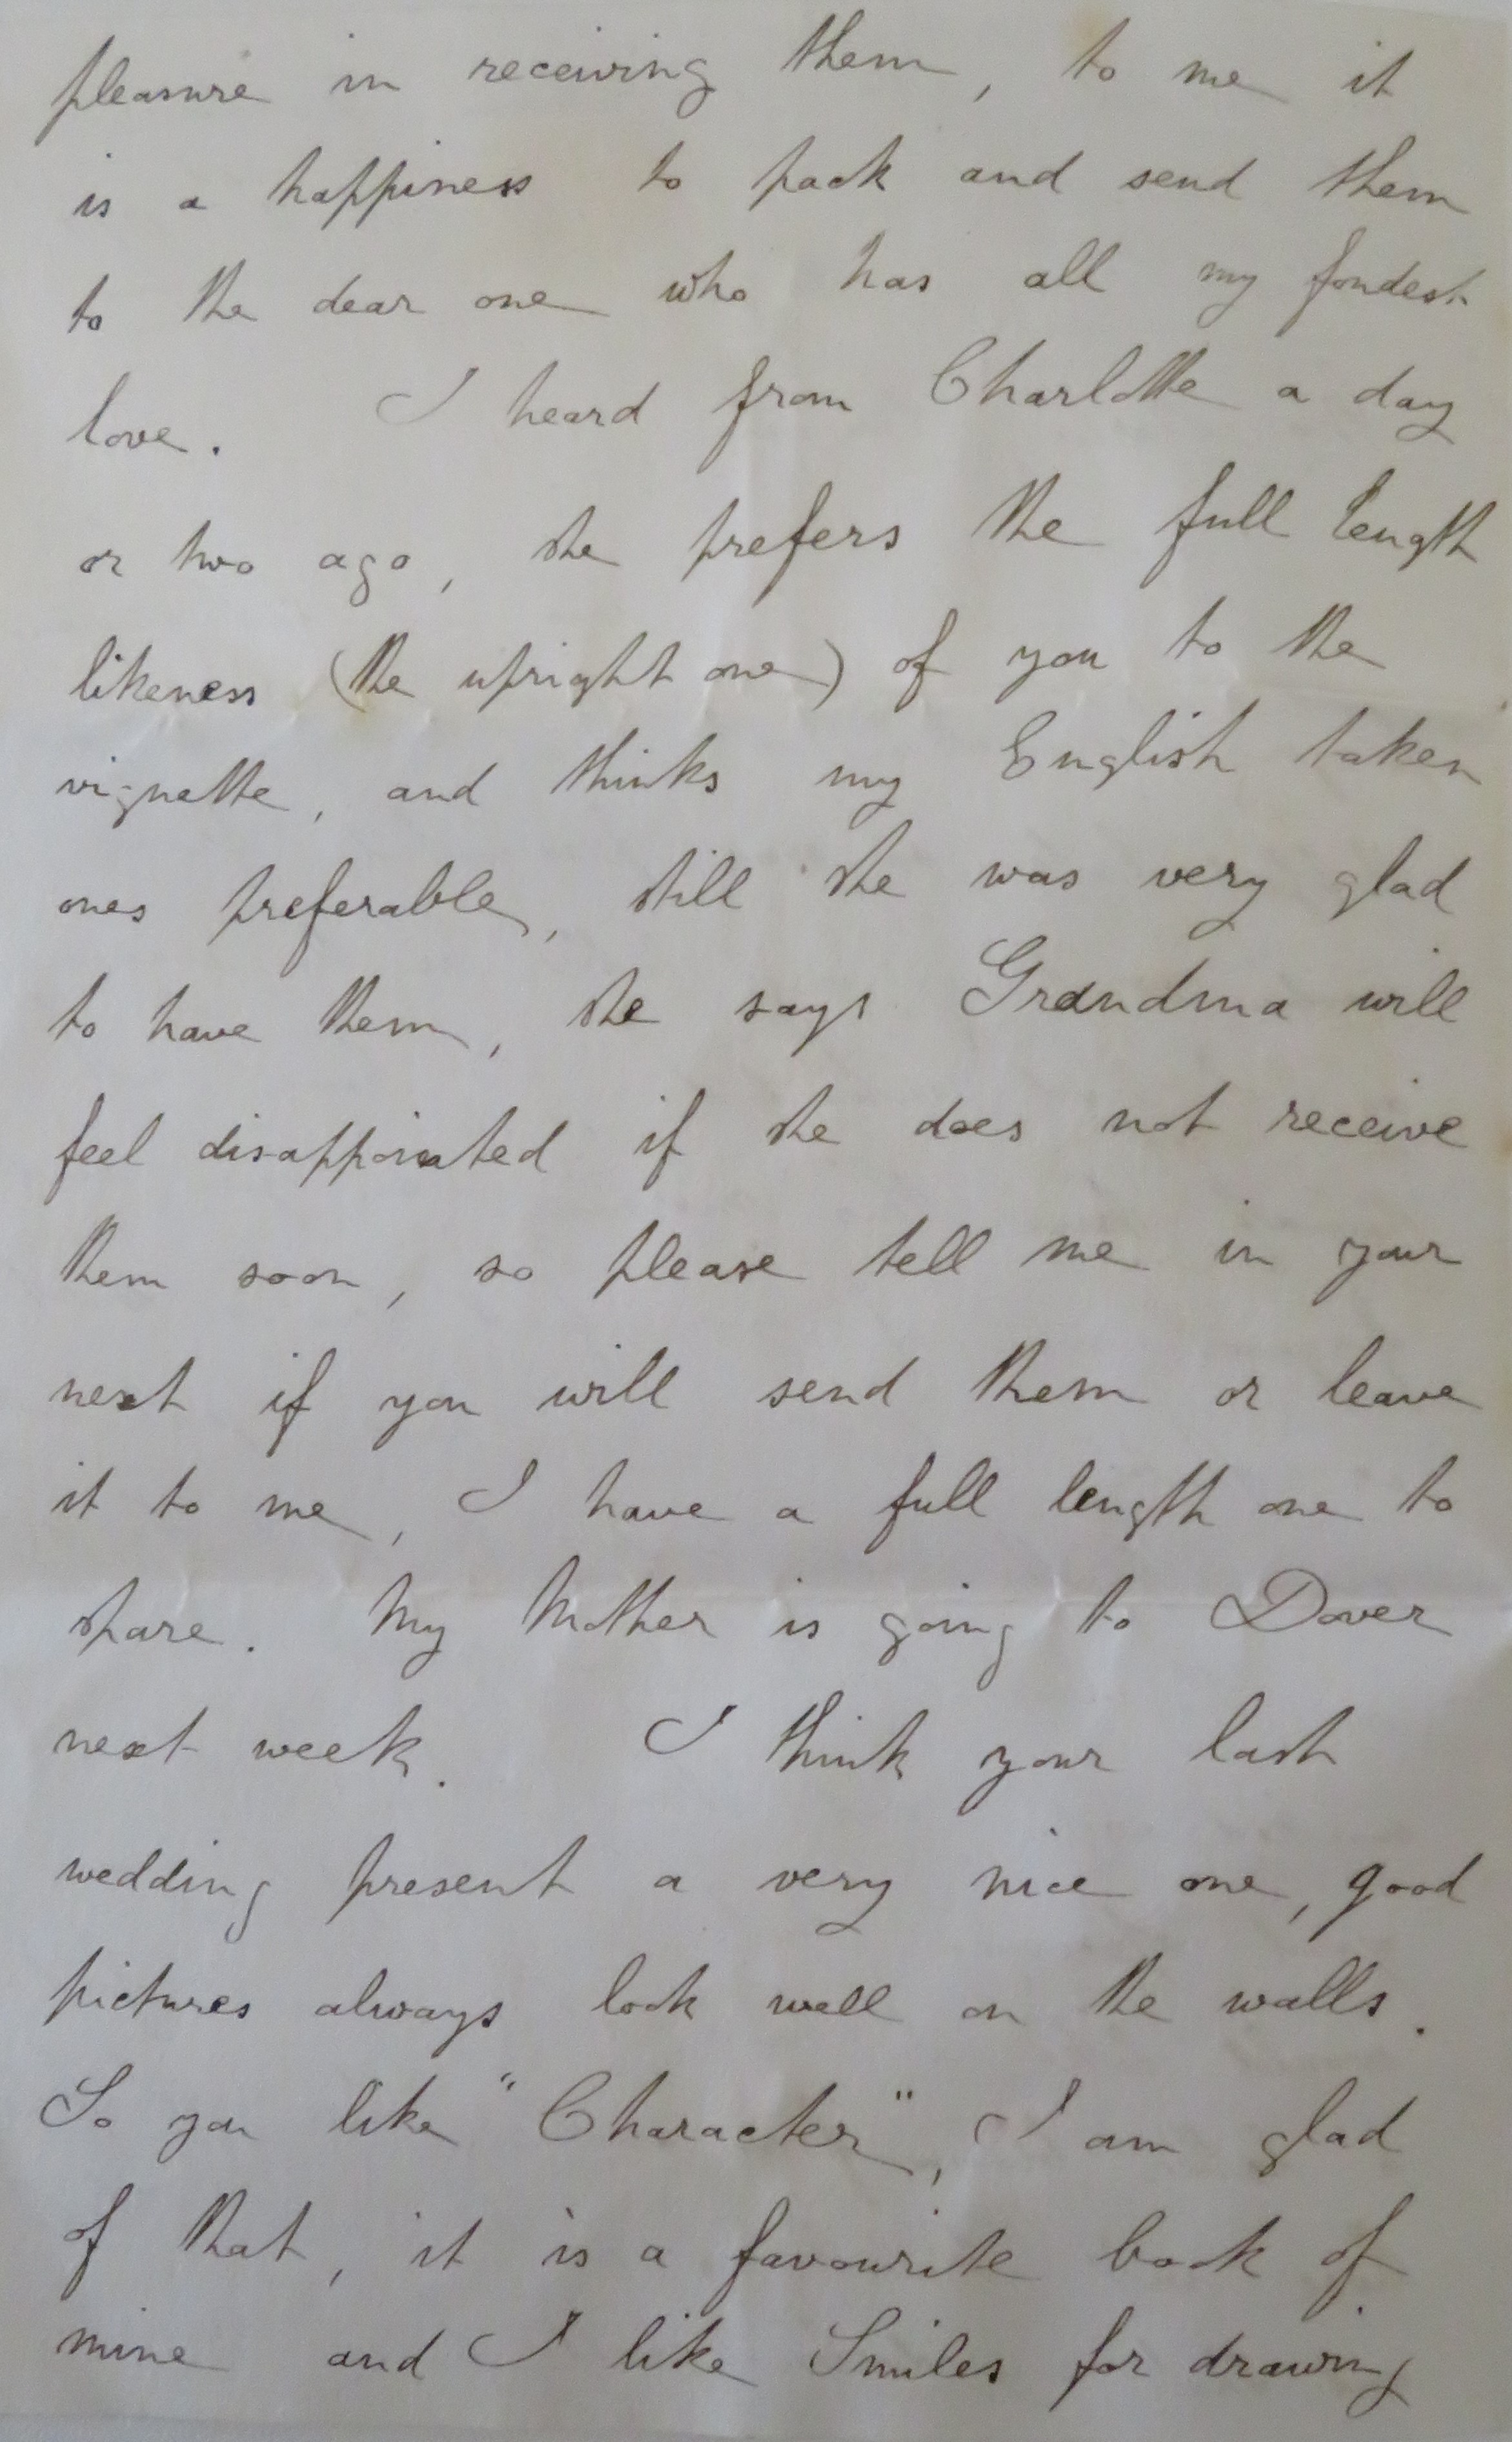 pleasure in receiving them, to me it
is a happiness to pack and send them
to the dear one who has all my fondest
love. I heard from Charlotte a day
or two ago, she prefers the full length
likeness (the upright one) of you to the
vignette, and thinks my English taken
ones preferable, still she was very glad
to have them, she says Grandma will
feel disappointed if she does not receive
them soon, so please tell me in your
next if you will send them or leave
it to me, I have a full length one to
spare. My Mother is going to Dover
next week. I think your last
wedding present a very nice one, good
pictures always look well on the walls.
So you like "Character", I am glad
of that, it is a favourite book of
mine and I like Smiles for drawing